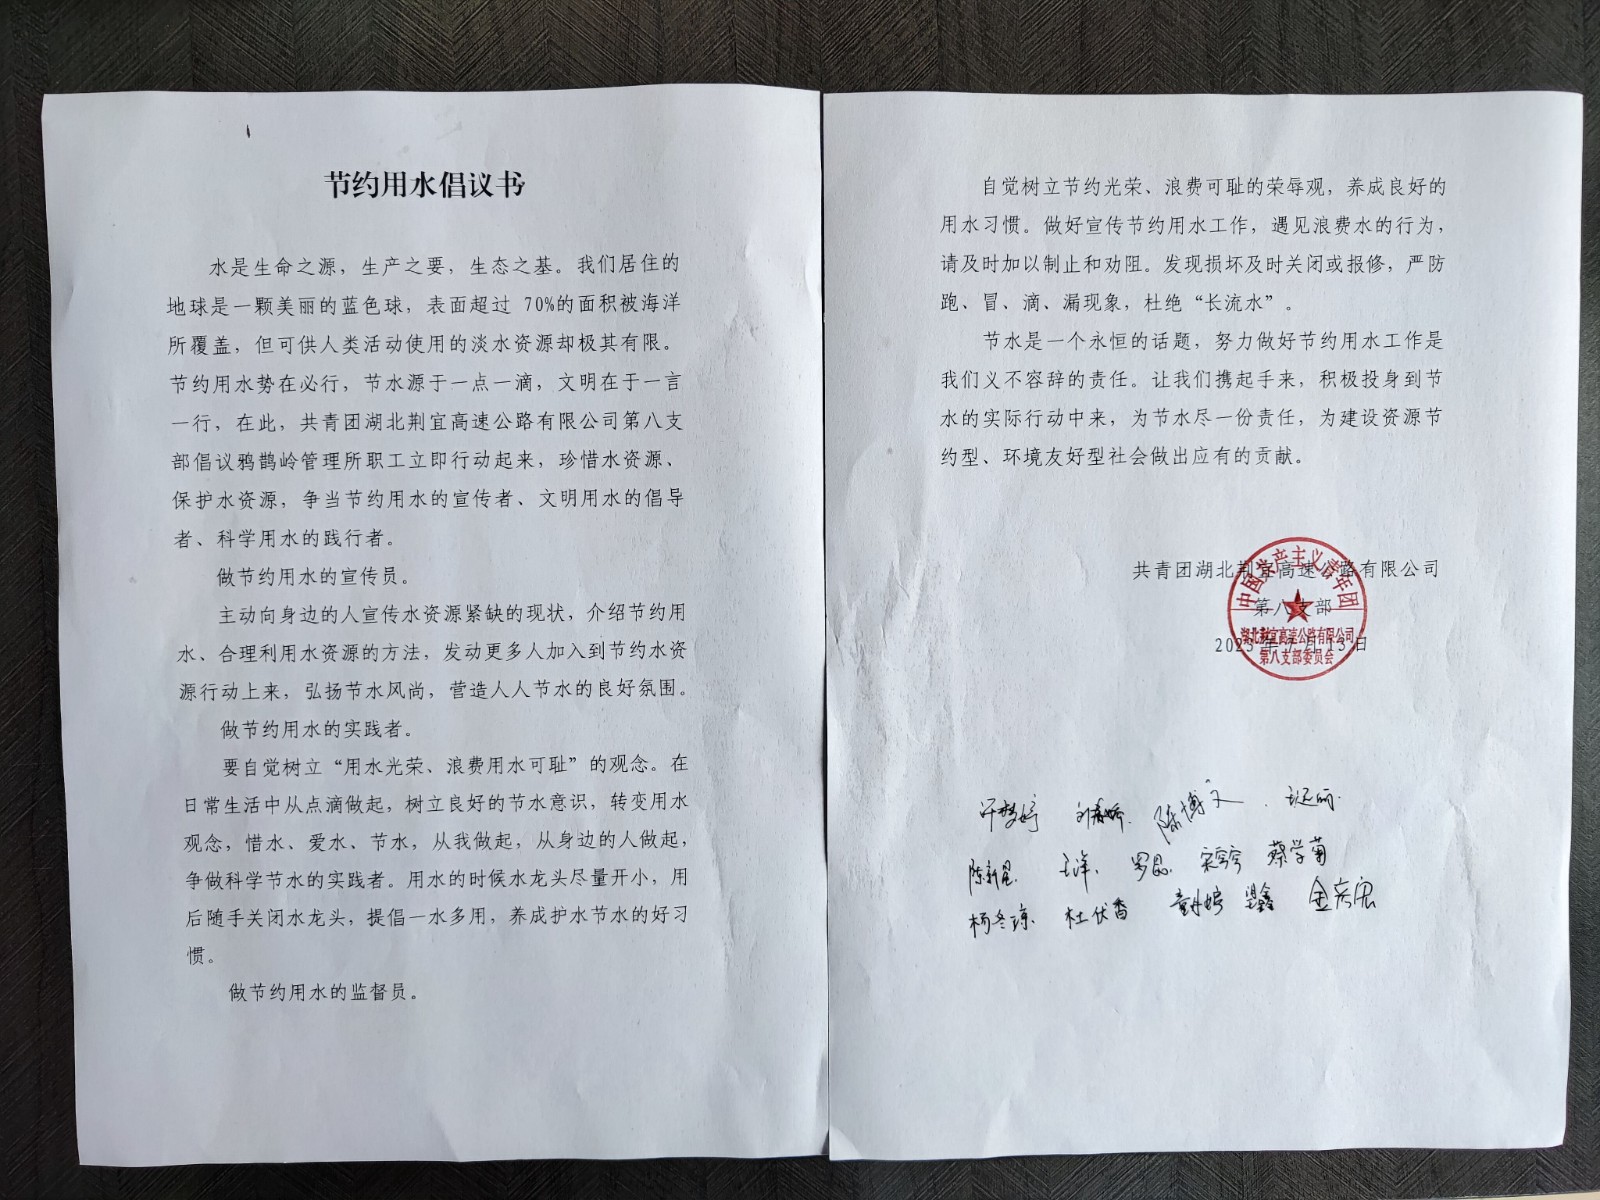 节约用水倡议书
水是生命之源，生产之要，生态之基。我们居住的
地球是一颗美丽的蓝色球，表面超过 70%的面积被海洋
所覆盖，但可供人类活动使用的淡水资源却极其有限。
节约用水势在必行，节水源于一点一滴，文明在于一言
一行，在此，共青团湖北荆宜高速公路有限公司第八支
部倡议鸦鹊岭管理所职工立即行动起来，珍惜水资源、
保护水资源，争当节约用水的宣传者、文明用水的倡导
者、科学用水的践行者。
做节约用水的宣传员。
主动向身边的人宣传水资源紧缺的现状，介绍节约用
水、合理利用水资源的方法，发动更多人加入到节约水资
源行动上来，弘扬节水风尚，营造人人节水的良好氛围。
做节约用水的实践者。
要自觉树立“用水光荣、浪费用水可耻”的观念。在
日常生活中从点滴做起，树立良好的节水意识，转变用水
观念，惜水、爱水、节水，从我做起，从身边的人做起，
争做科学节水的实践者。用水的时候水龙头尽量开小，用
后随手关闭水龙头，提倡一水多用，养成护水节水的好习
惯。
做节约用水的监督员。
自觉树立节约光荣、浪费可耻的荣辱观，养成良好的
用水习惯。做好宣传节约用水工作，遇见浪费水的行为，
请及时加以制止和劝阻。发现损坏及时关闭或报修，严防
跑、冒、滴、漏现象，杜绝“长流水”。
节水是一个永恒的话题，努力做好节约用水工作是
我们义不容辞的责任。让我们携起手来，积极投身到节
水的实际行动中来，为节水尽一份责任，为建设资源节
约型、环境友好型社会做出应有的贡献。
共青团湖北荆宜高速公路有限公司
第八支部
2023 年 7 月 13 日
中国共产主义青年团
湖北荆宜高速公路有限公司
第八支部委员会
许梦婷 陈博文
陈新星 王洋 罗昆 宋宇宇 蔡学菊
杨冬琼 杜伏香 童婷 金宏